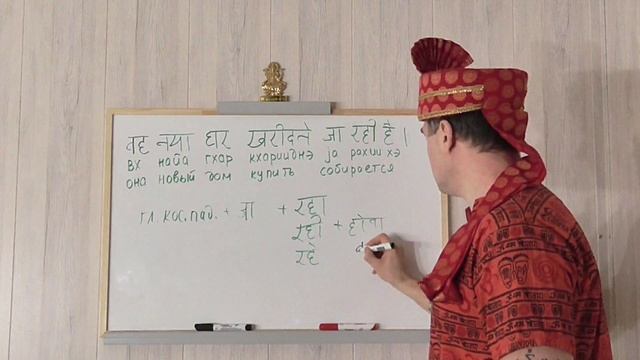 वह नया घर खरीदने जा रही है।
вх найа гхар кхариднэja рахии хэ
она новый дом купить собирается
гл. кос. пад. + जा + रहा
रही + होना
रहे